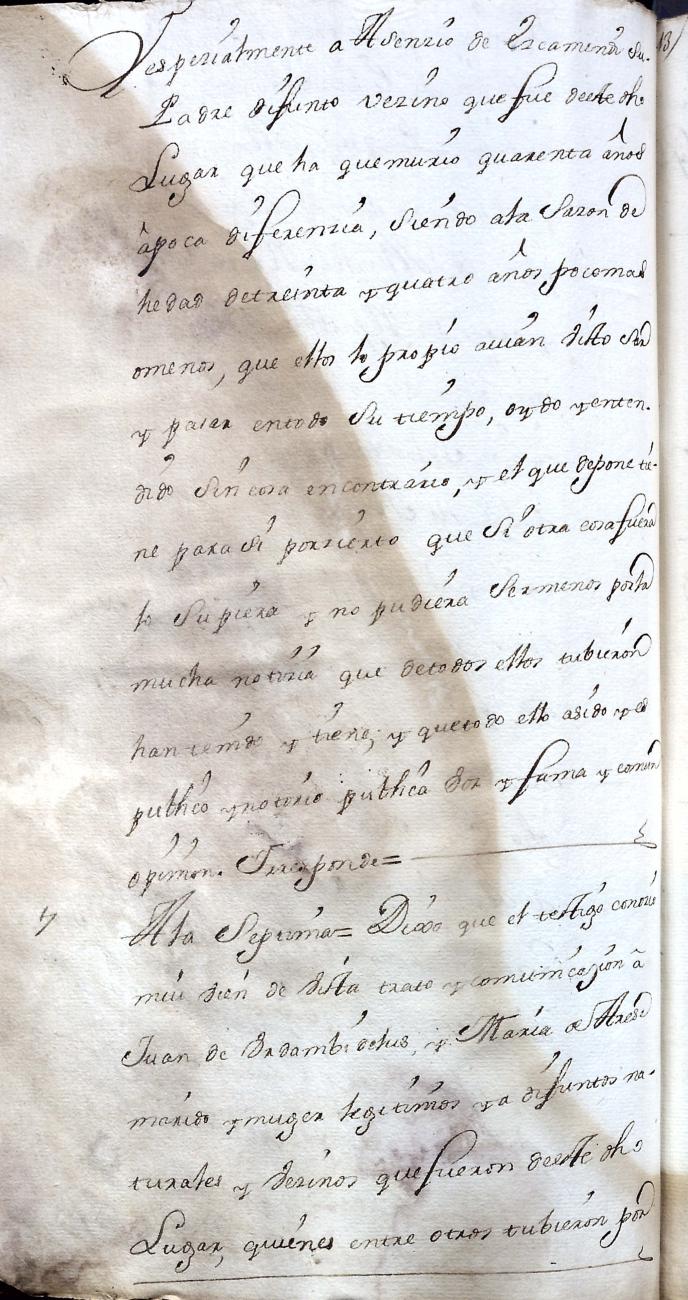 Y especialmente a Asenzio de Ezcamendi su
Padre difunto vezino que fue deeste dho
Lugar que ha que murio quarenta años
apoca diferenzia, siendo ala sazon de
hedad de treinta y quatro años, poco mas
omenos, que ellos lo propio avian visto ser
y pasar entodo su tiempo, oydo y enten-
dido sin cosa encontrario, y el que depone tie-
ne parasi porzierto que si otra cosa fuera
lo supiera y no pudiera ser menos por la
mucha notizia que de todos ellos tubieron
han tenido y tiene; y que todo ello asido y es
publico y notorio publica voz y fama y comun
opinion. Y responde=
7 Ala Septima= Dixo que el testigo conozio
mui bien de vista trato y comunicazion â
Juan de Urdambidelus, y Maria de
marido y muger legitimos ya difuntos na-
turales y vezinos que fueron deeste dho
Lugar, quienes entre otros tubieron por
13/